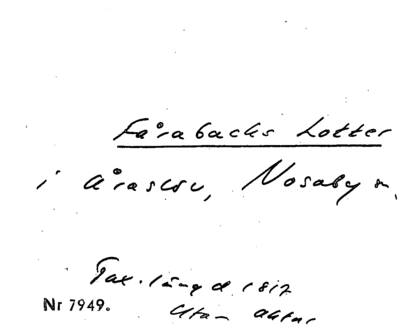 Fårabacks Lotter
i Åraslöv, Nosaby sn.
Tax.längd 1817
Nr 7949.
Utan aktnr